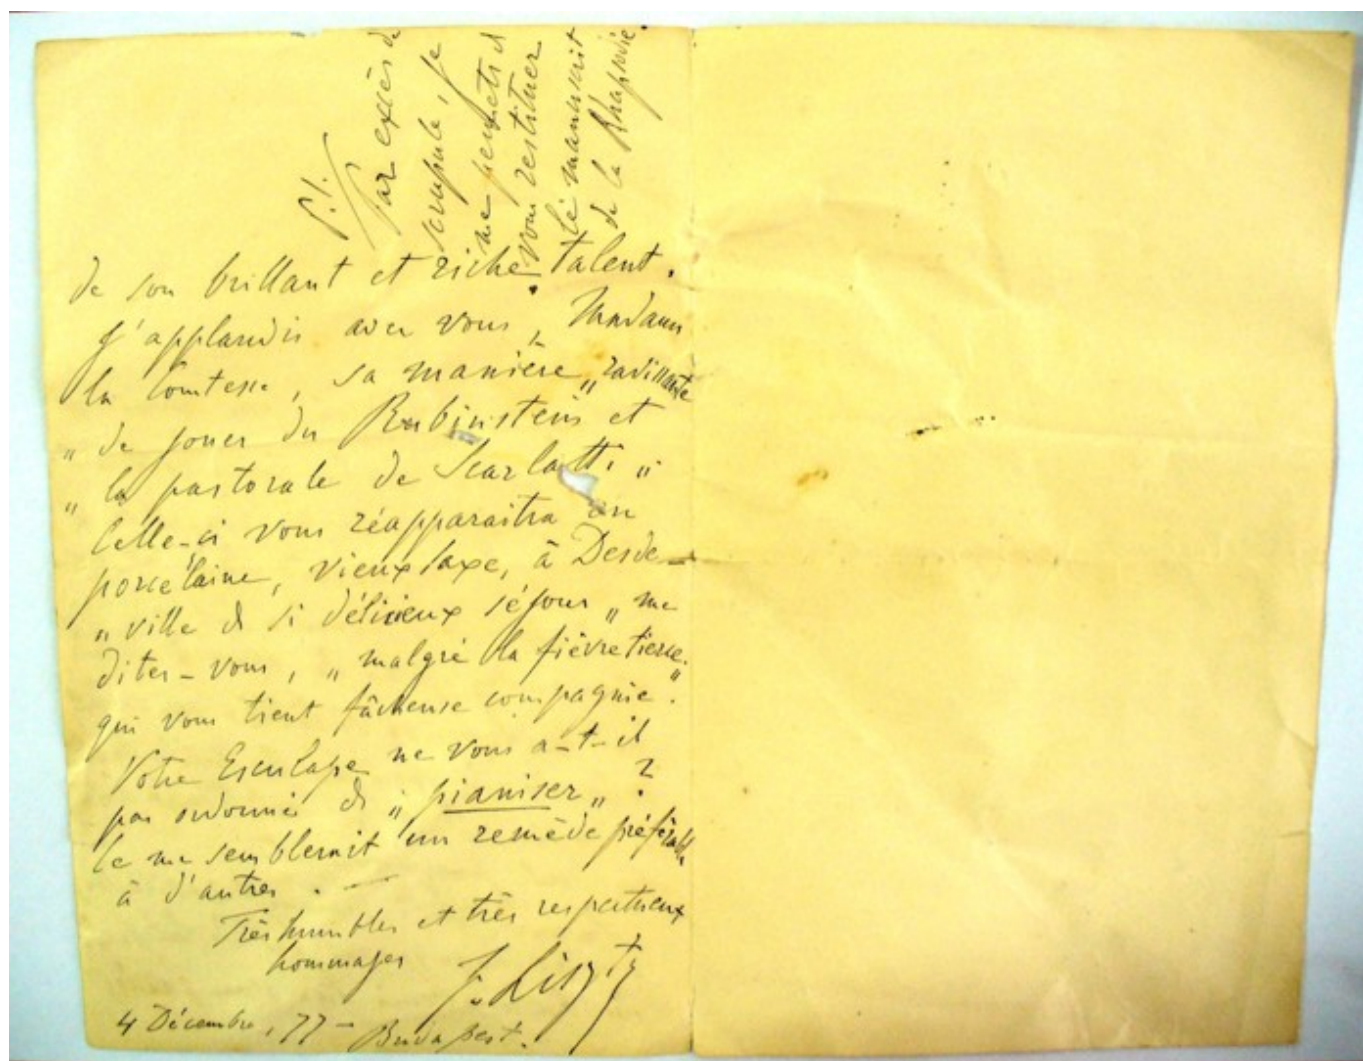 P.S.
Par excès de
scrupule, je
me permets de
vous restituer
le manuscrit
de la Rhapsodie.
de son brillant et riche talent.
J'applaudis avec vous, Madame
la Comtesse, sa manière „ravissante
„de jouer du Rubinstein et
„la pastorale de Scarlatti„
Celle-ci vous réapparaitra en
porcelaine, vieux Saxe, à
„ville de si délicieux séjour„ me
dites-vous, „malgré la fièvre tierce„
qui vous tient fâcheuse compagnie.
Votre Esculape ne vous a-t-il
pas ordonné de „pianiser„?
Ce me semblerait un remède préférable
à d'autres. —
Très humbles et très respectueux
hommages
F. Liszt
4 Décembre, 77 - Budapest.